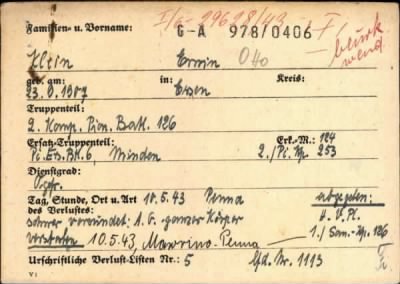 I/a - 29628/43 - F
Familien- u. Vorname: G-A 978/0406
Klein Erwin Otto
geb. am: in: Kreis:
23.9.1907 Essen
Truppenteil:
2. Komp. Pion. Batl. 126
Ersatz-Truppenteil: Erk.-M.: 124
Pi. Ers. Btl. 6, Minden 2./Pi. Kp 253
Dienstgrad:
Ogfr.
Tag, Stunde, Ort u. Art 10.5.43 Penna abgegeben:
des Verlustes: H.V.Pl.
schwer verwundet: 1.G. ganzer Körper 1./San.-Kp. 126
verstorben 10.5.43, Mawrino-Penna
Urschriftliche Verlust-Listen Nr.: 5 lfd. Nr. 1113
V 1